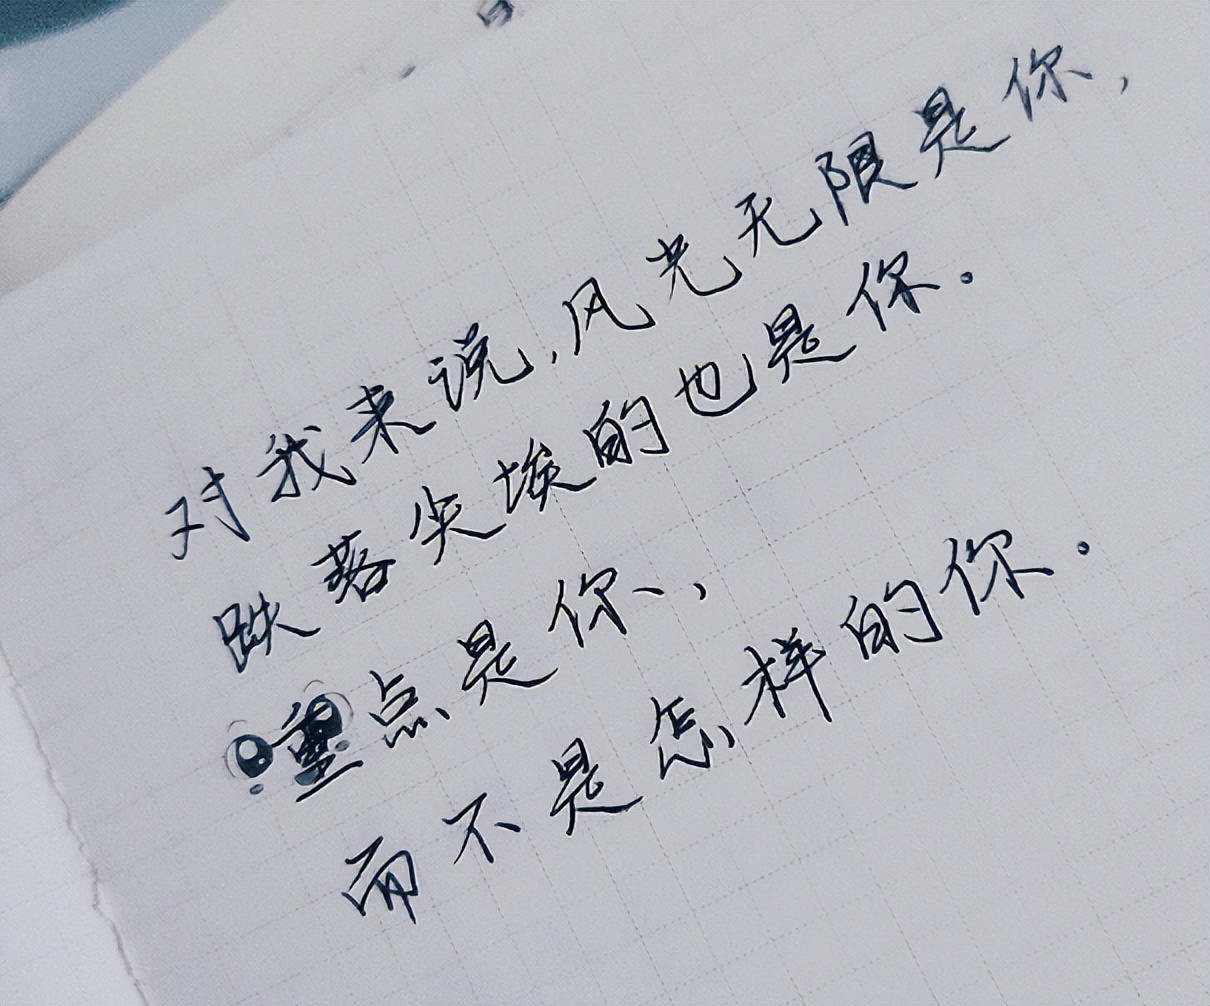 对我来说,风光无限是你,
跌落尖埃的也是你.
重点是你,
而不是怎样的你.